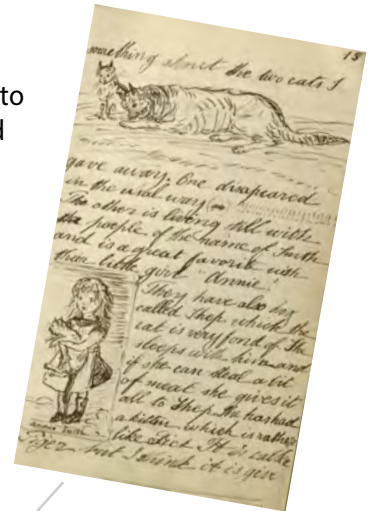 to
d
18
something about the two cats I
gave away. One disapeared
in the usual way
The other is living still with
the people of the name of Smith
and is a great favorite with
their little girl "Annie".
They have also dog
called Shep which the
cat is very fond of She
sleeps with him and
if she can steal a bit
of meat she gives it
all to Shep. She has had
a kitten which is rather
like Dick It is called
Tiger, but I think it is give
Annie Smith